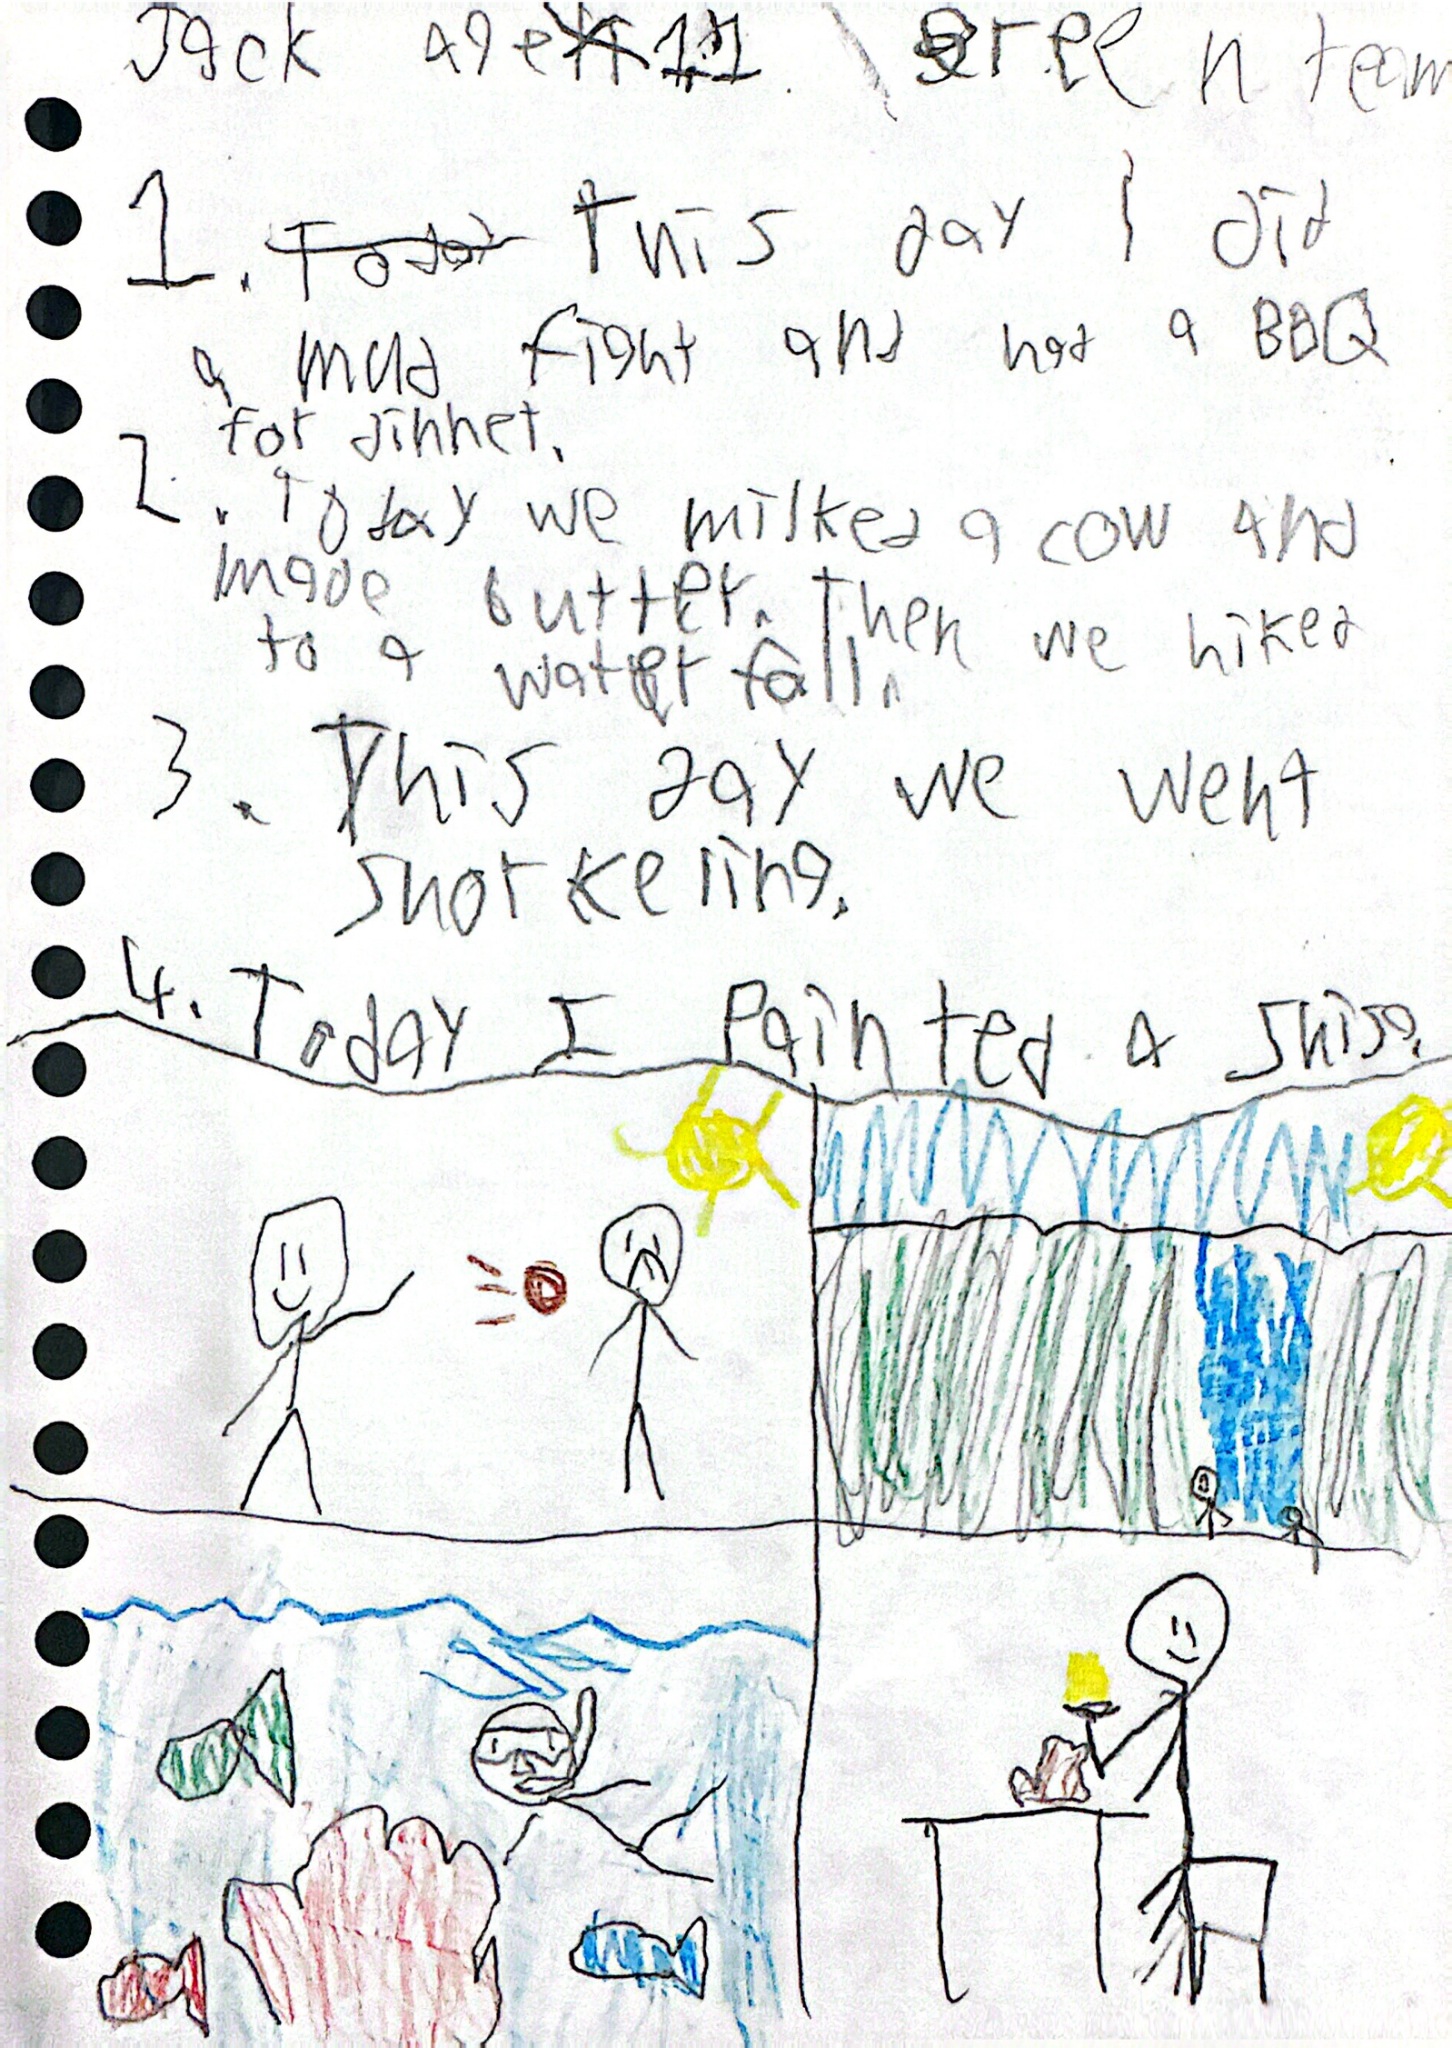 Jack age 11 green team
1. Today This day I did
a mud fight and had a BBQ
for dinner.
2. Today we milked a cow and
made butter. Then we hiked
to a water fall.
3. This day we went
snorkeling.
4. Today I Painted a